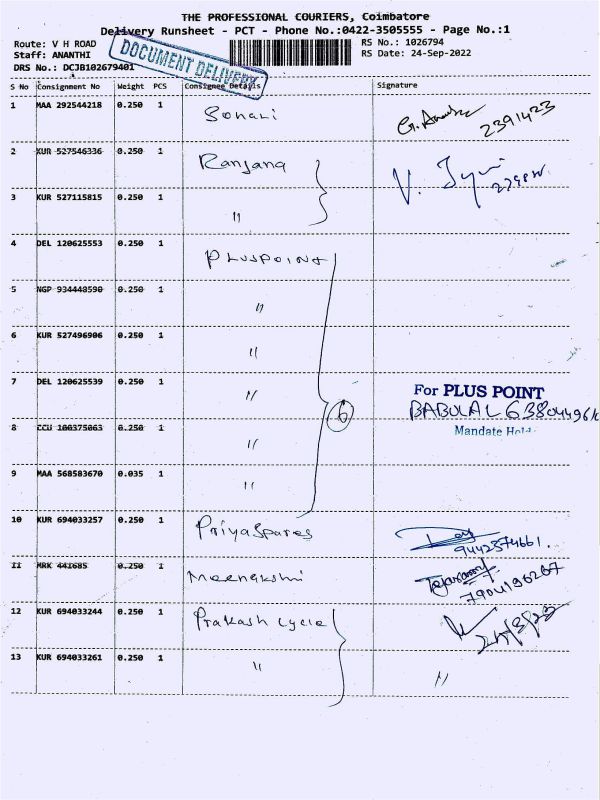 THE PROFESSIONAL COURIERS, Coimbatore
Delivery Runsheet - PCT - Phone No.:0422-3505555 - Page No.:1
Route: V H ROAD
Staff: ANANTHI
DRS No.: DCJB102679401
DOCUMENT DELIVERY
RS No.: 1026794
RS Date: 24-Sep-2022
S No Consignment No Weight PCS Consignee Details Signature
1 MAA 292544218 0.250 1 Sonali G. 2391423
2 KUR 527546336 0.250 1 Ranjana V.
3 KUR 527115815 0.250 1 "
4 DEL 120625553 0.250 1 PLUSPOINT
5 NGP 934448590 0.250 1 "
6 KUR 527496906 0.250 1 "
7 DEL 120625539 0.250 1 "
For PLUS POINT
6 BABULAL
8 CCU 100375063 0.250 1 "
Mandate Hold
9 MAA 568583670 0.035 1 "
10 KUR 694033257 0.250 1 Priya Spares
11 MRK 441685 0.250 1 Meenakshi 7904196267
12 KUR 694033244 0.250 1 Prakash cycle
13 KUR 694033261 0.250 1 " "